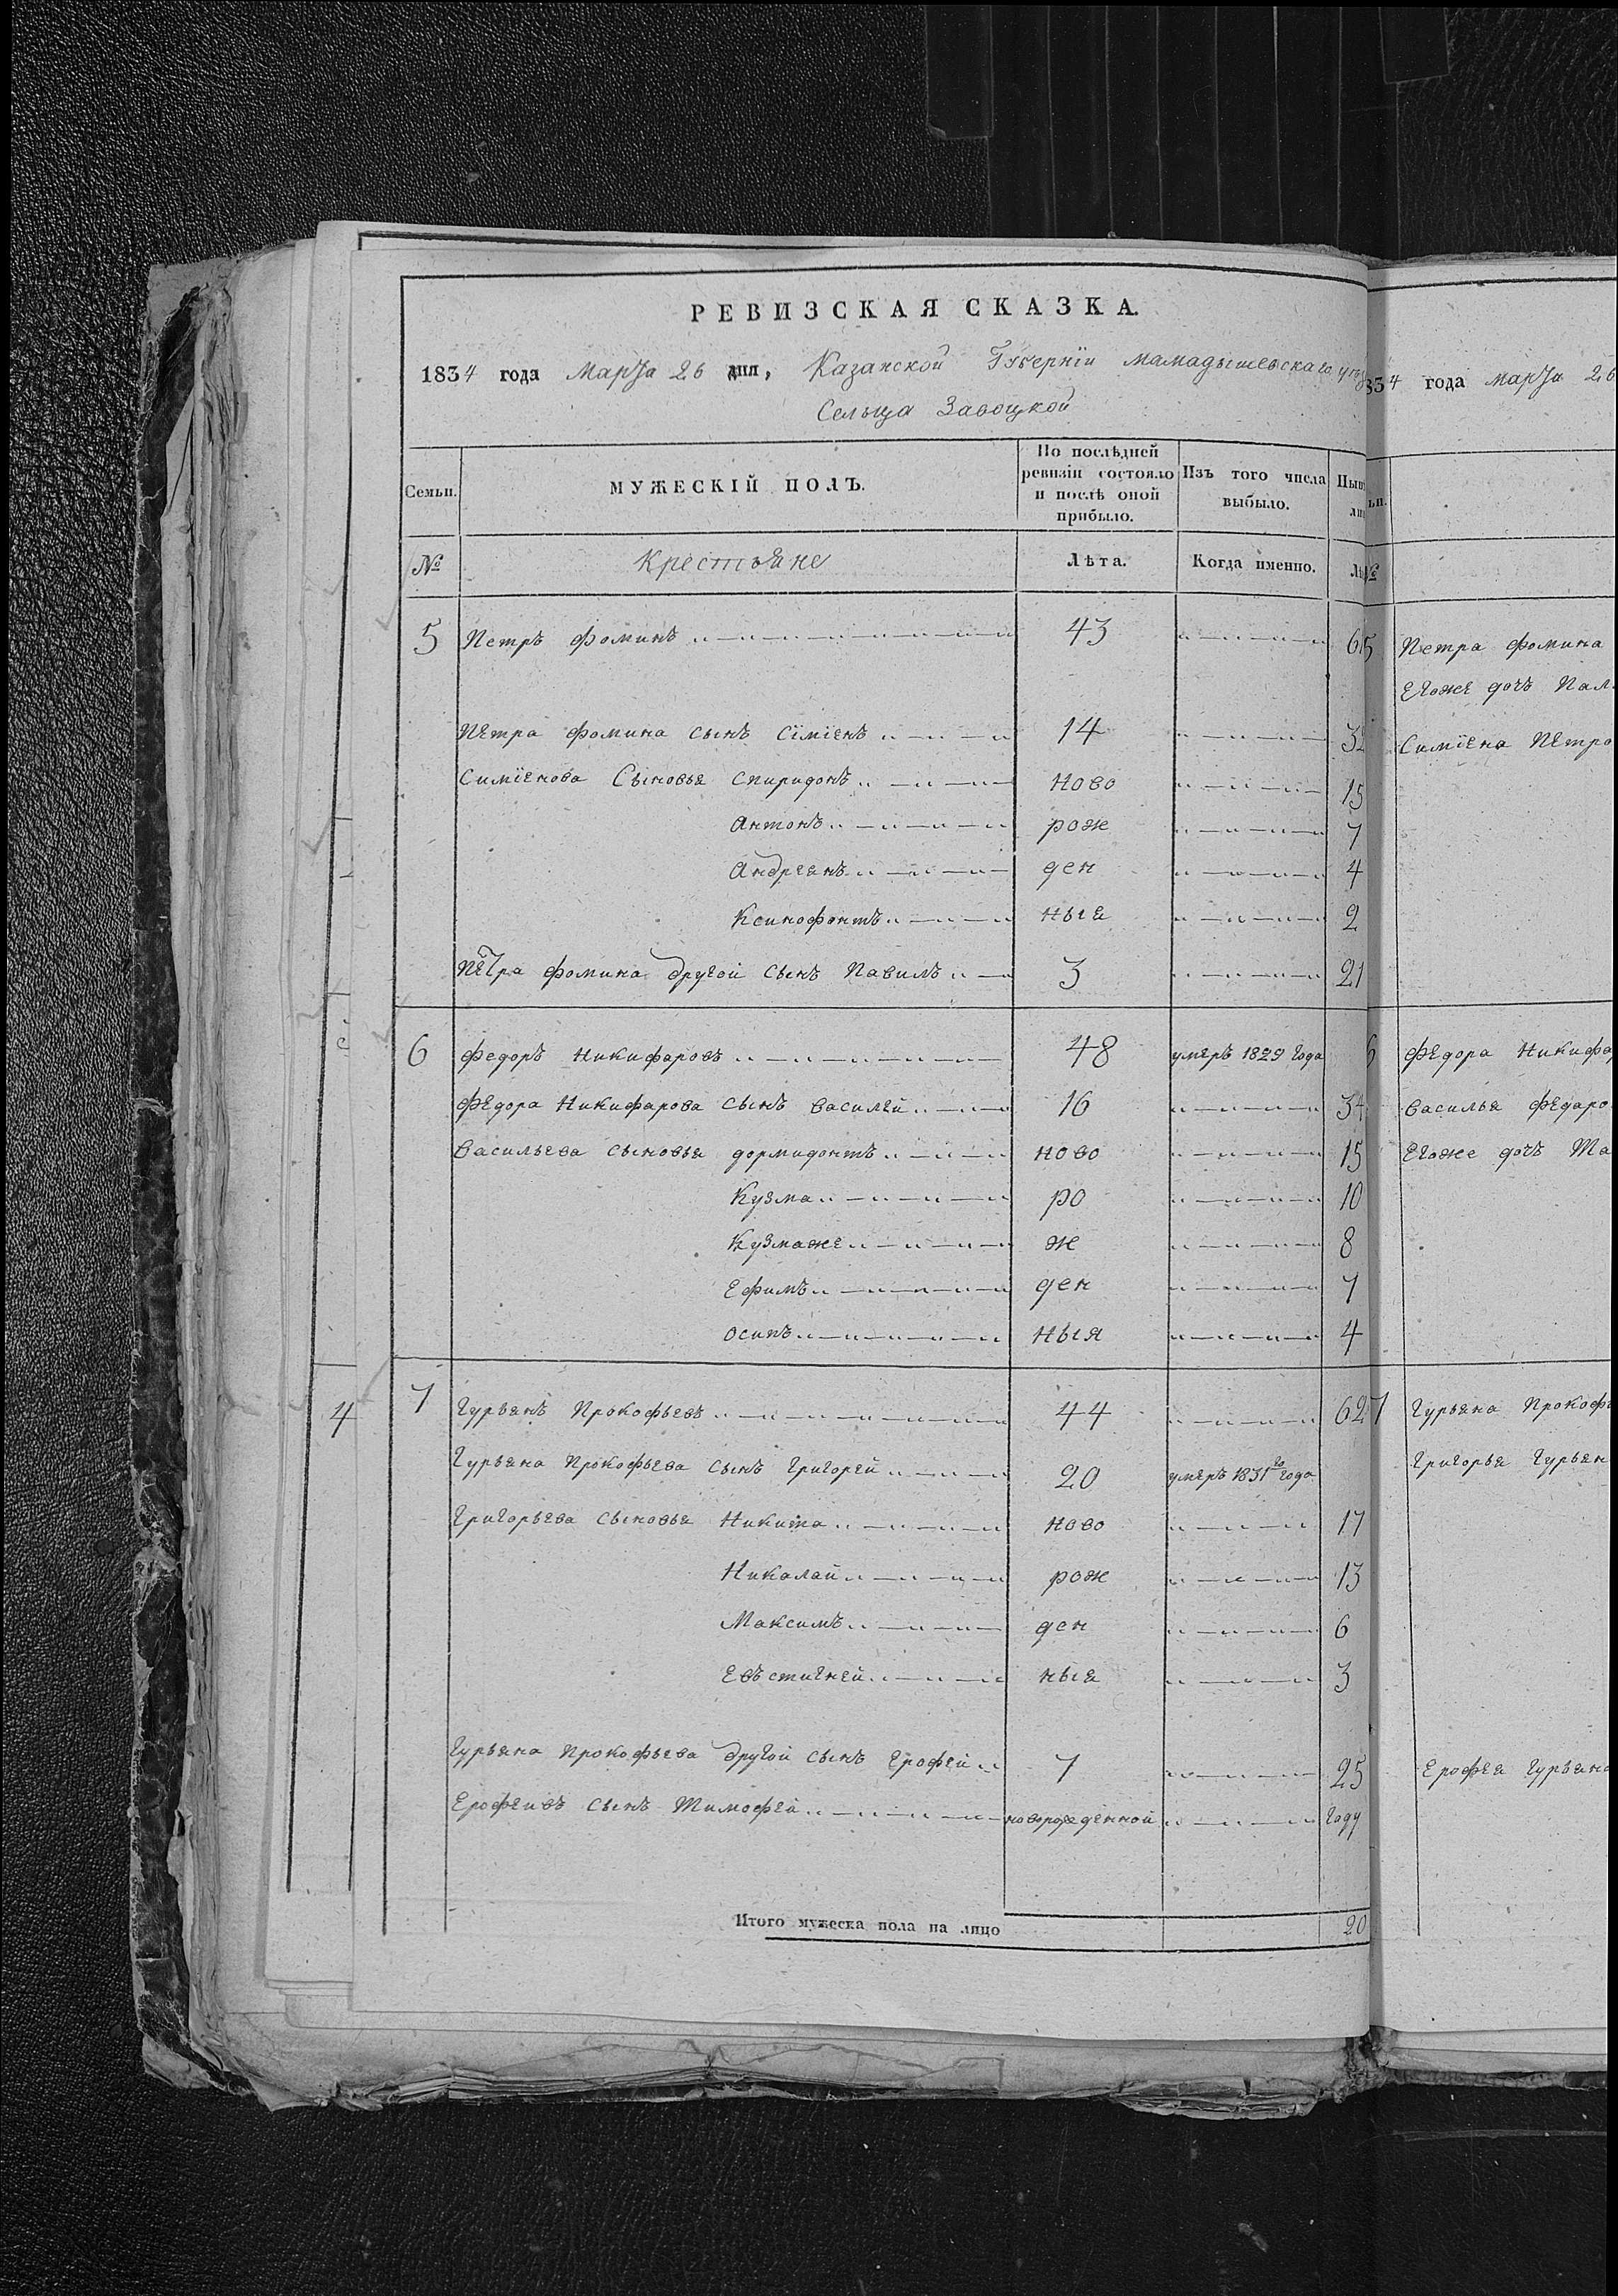 РЕВИЗСКАЯ СКАЗКА.
1834 года Марта 26 дня, Казанской Губернїи мамадышевскаго
Сельца Завоцкой
Семьи. МУЖЕСКІЙ ПОЛЪ. По послѣдней ревизіи состояло и послѣ оной прибыло. Изъ того числа выбыло.
№ Крестьяне Лѣта. Когда именно.
5 Петръ фоминъ 43 65
Петра фомина сынъ Сїмїенъ 14 32
Симїенова Сыновья спиридонъ ново 15
антонъ рож 7
андреянъ ден 4
Ксинофонтъ ныя 2
Петра фомина другой сынъ Павилъ 3 21
6 федоръ Никифаровъ 48 умеръ 1829 года
федора Никифарова сынъ василей 16 34
васильева сыновья дормидонтъ ново 15
Кузма ро 10
Кузмаже ж 8
Ефимъ ден 7
осипъ ныя 4
7 Гурьянъ Прокофьевъ 44 62
Гурьяна Прокофьева сынъ григорей 20 умеръ 1831го года
Григорьева сыновья Никита ново 17
Николай рож 13
Максимъ ден 6
Евъстигней ныя 3
Гурьяна прокофьева другой сынъ Ерофей 7 25
Ерофеивъ сынъ Тимофей новорожденной году
Итого мужеска пола на лицо 20
4
834 года марта 26
№
Петра фомина
Егоже дочь
Симїена Петро
федора Никифа
василья федаро
Егоже дочь Та
7 Гурьяна Прокофь
Григорья Гурьян
Ерофея Гурьяно